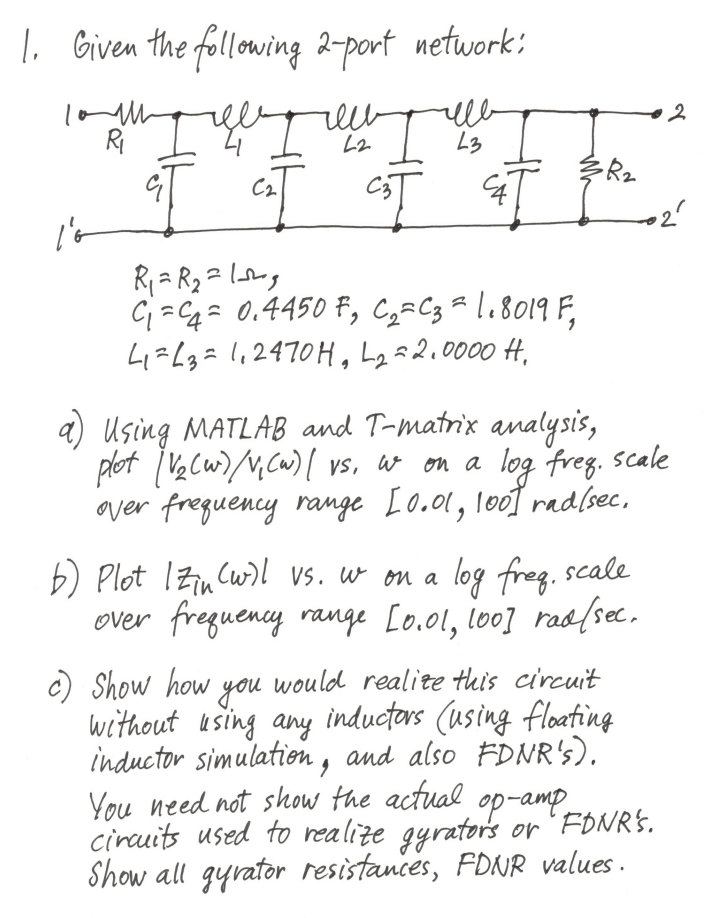 1. Given the following 2-port network:
1 R1 L1 L2 L3 2
C1 C2 C3 C4 R2
1' 2'
R1 = R2 = 1Ω,
C1 = C4 = 0.4450 F, C2 = C3 = 1.8019 F,
L1 = L3 = 1.2470 H, L2 = 2.0000 H.
a) Using MATLAB and T-matrix analysis,
plot |V2(w)/V1(w)| vs. w on a log freq. scale
over frequency range [0.01, 100] rad/sec.
b) Plot |Zin(w)| vs. w on a log freq. scale
over frequency range [0.01, 100] rad/sec.
c) Show how you would realize this circuit
without using any inductors (using floating
inductor simulation, and also FDNR's).
You need not show the actual op-amp
circuits used to realize gyrators or FDNR's.
Show all gyrator resistances, FDNR values.